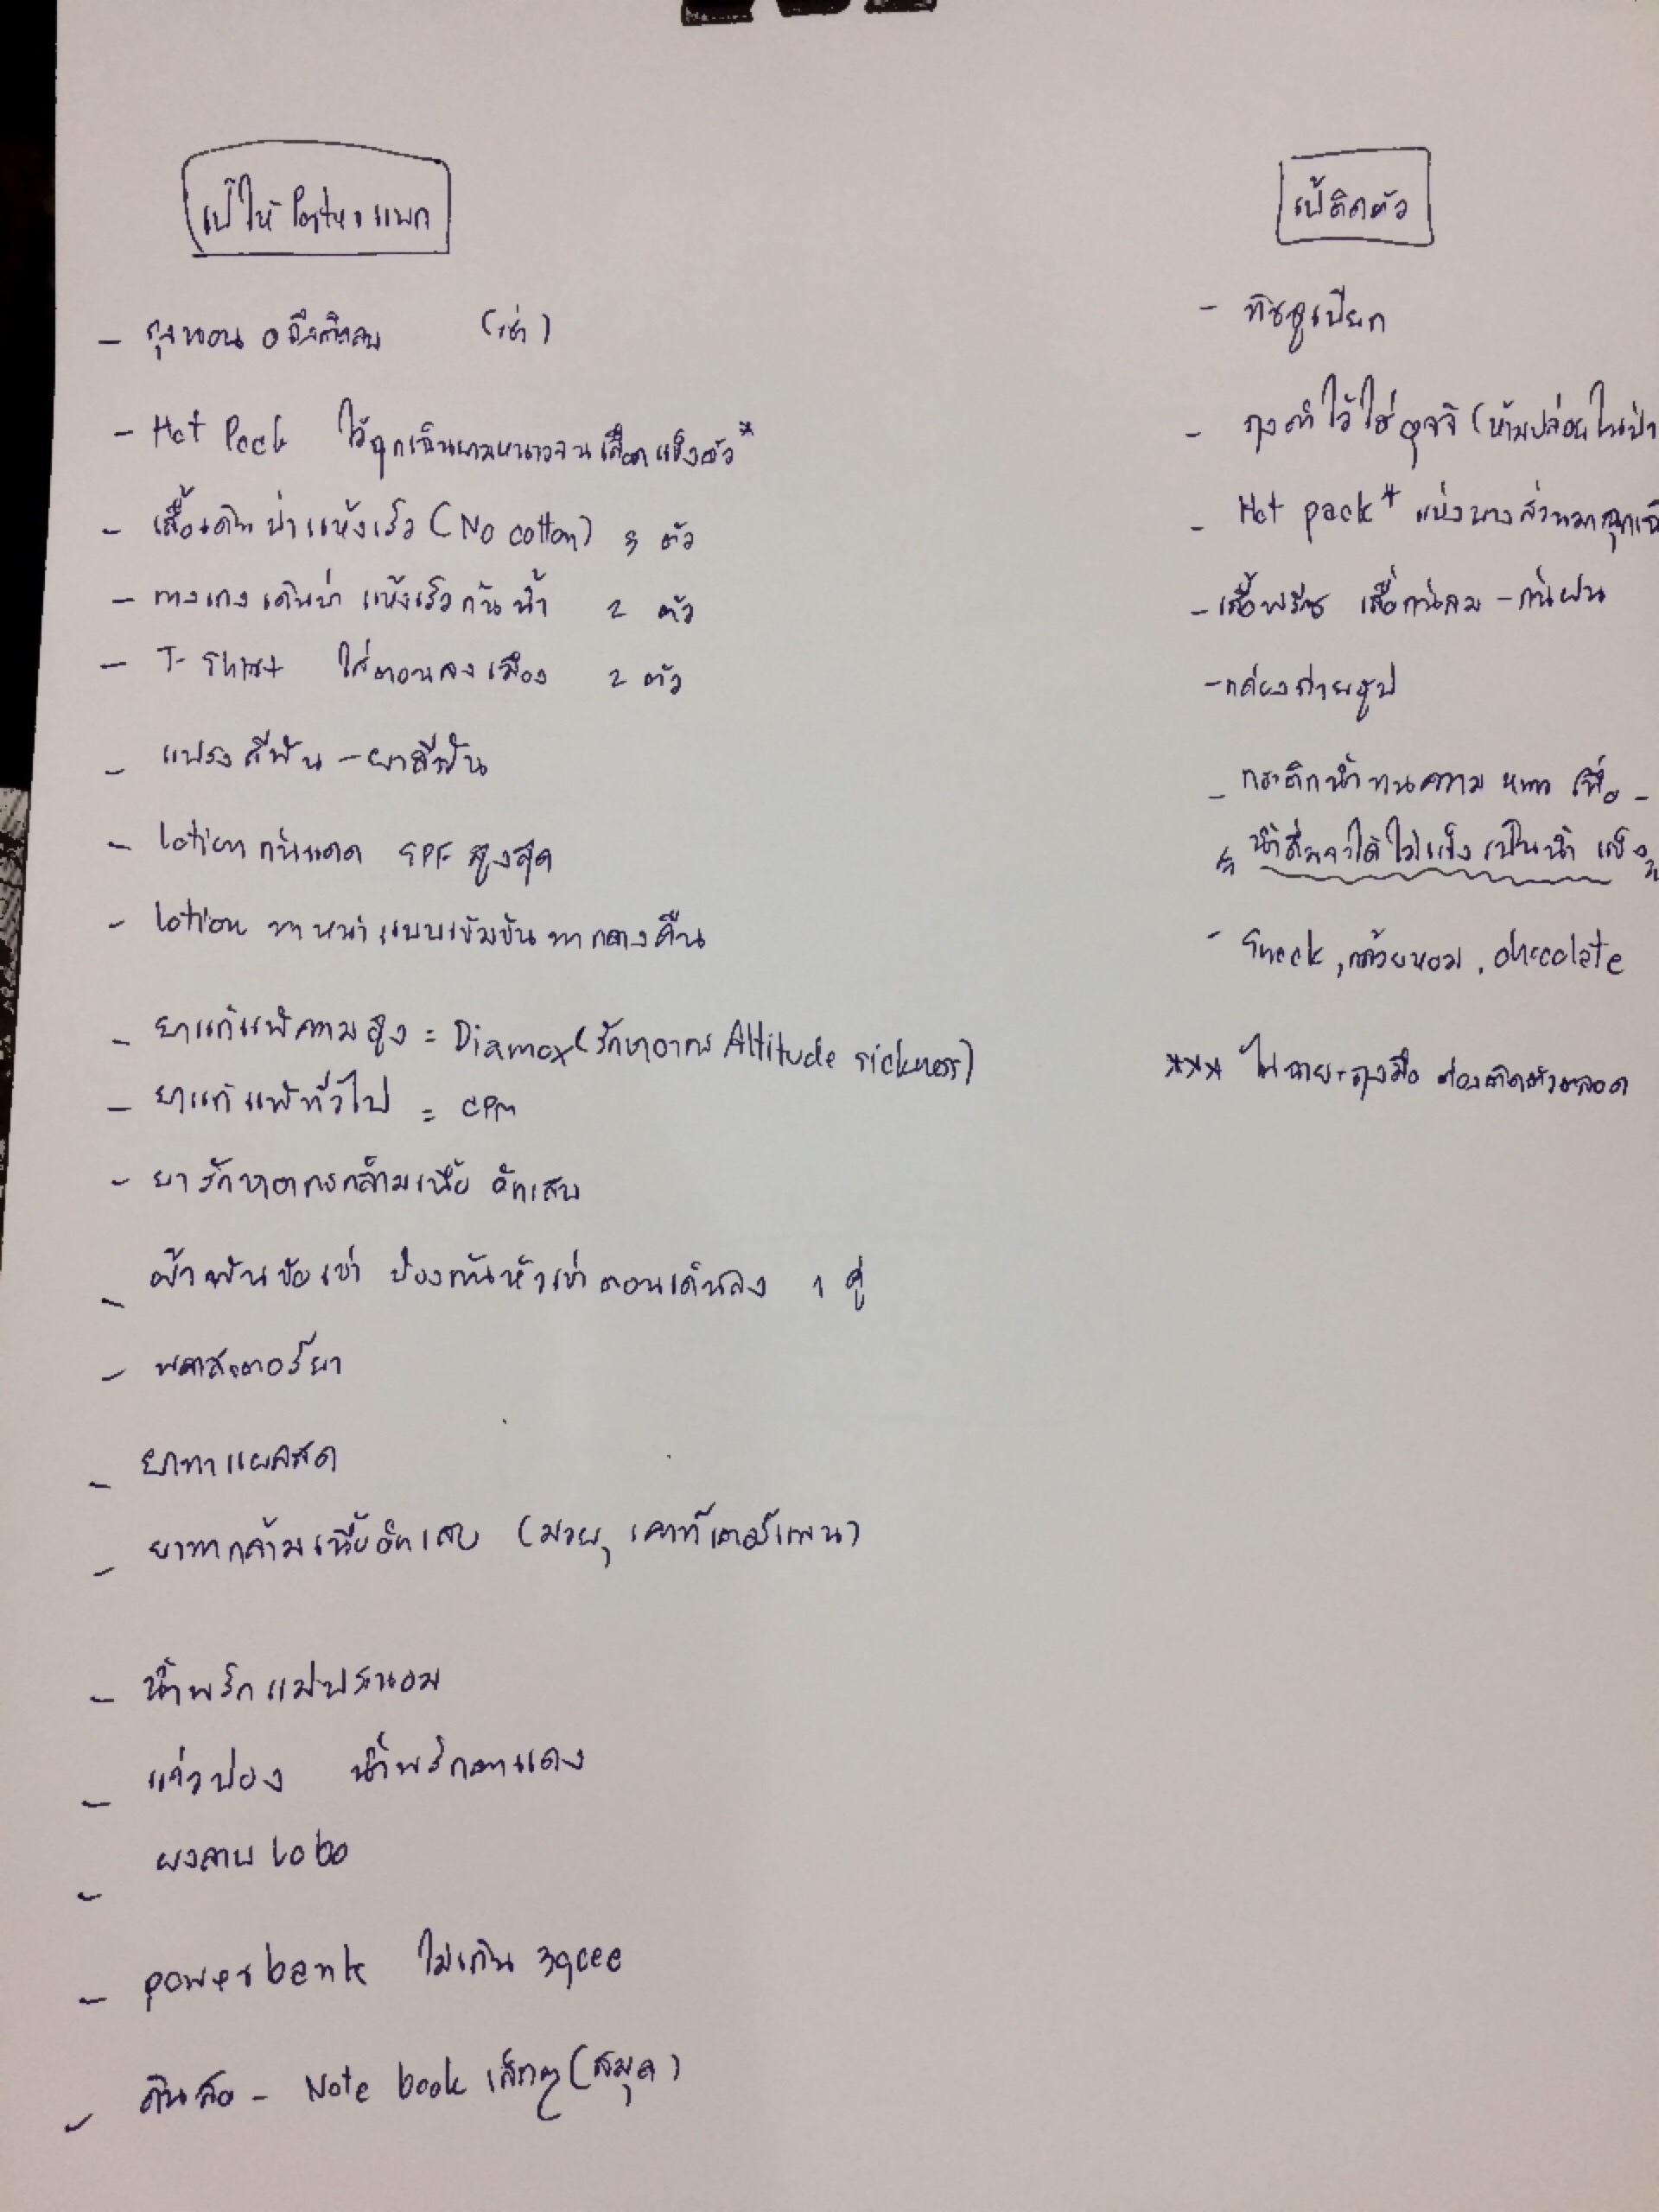 เป้ให้ Porter แบก
- ถุงนอน 0 ถึงติดลบ (เช่า)
- Hot Pack ไว้ฉุกเฉินยามหนาวจนเลือดแข็งตัว*
- เสื้อเดินป่าแห้งเร็ว (No cotton) 3 ตัว
- กางเกงเดินป่า แห้งเร็วกันน้ำ 2 ตัว
- T-Shirt ใส่ตอนลงเมือง 2 ตัว
- แปรงสีฟัน - ยาสีฟัน
- lotion กันแดด SPF สูงสุด
- lotion ทาหน้าแบบเข้มข้นทากลางคืน
- ยาแก้แพ้ความสูง = Diamox (รักษาอาการ Altitude sickness)
- ยาแก้แพ้ทั่วไป = CPM
- ยารักษาอาการกล้ามเนื้ออักเสบ
- ผ้าพันข้อเข่า ป้องกันหัวเข่าตอนเดินลง 1 คู่
- พลาสเตอร์ยา
- ยาทาแผลสด
- ยาทากล้ามเนื้ออักเสบ (มวย, เคาท์เตอร์เพน)
- น้ำพริกแม่ประนอม
- แจ่วบ่อง น้ำพริกตาแดง
- ผงลาบ lobo
- powerbank ไม่เกิน
- ดินสอ - Note book เล็กๆ (สมุด)
เป้ติดตัว
- ทิชชูเปียก
- ถุงดำไว้ใส่อุจจิ (ห้ามปล่อยในป่า
- Hot pack* แบ่งบางส่วนมาฉุกเฉิ
- เสื้อฟรีซ เสื้อกันลม - กันฝน
- กล้องถ่ายรูป
- กระติกน้ำทนความหนาว เพื่อ -
น้ำดื่มจะได้ไม่แข็งเป็นน้ำแข็ง
- Snack, กล้วยหอม, chocolate
*** ไฟฉาย+ถุงมือ ต้องติดตัวตลอด